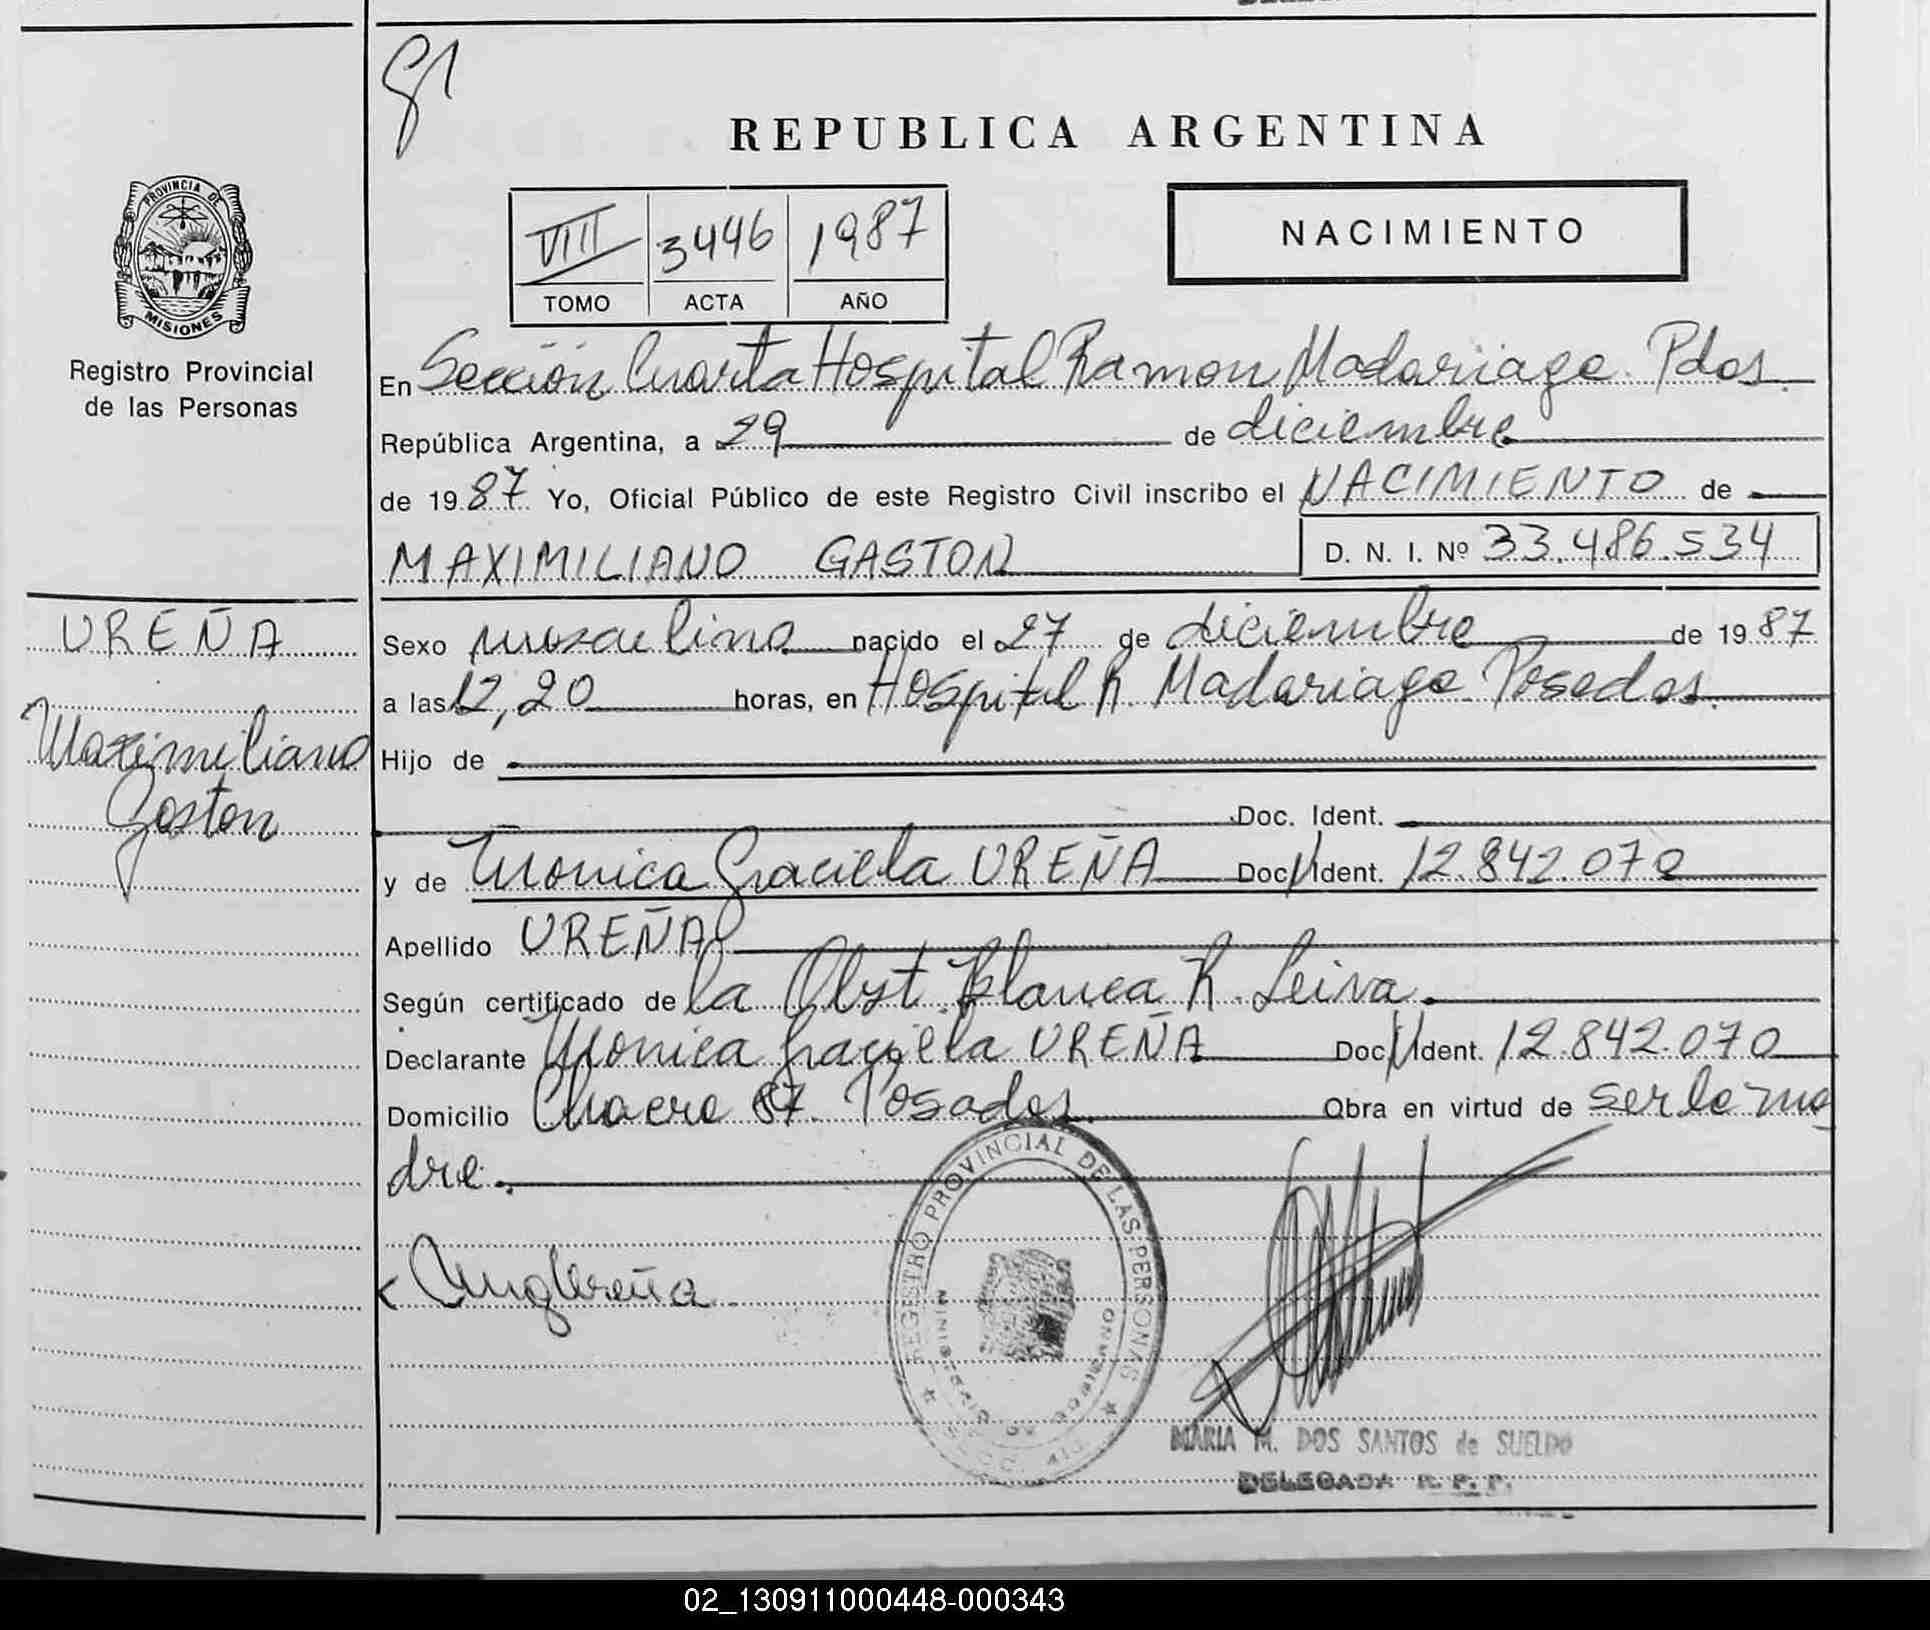 81
REPUBLICA ARGENTINA
PROVINCIA DE
MISIONES
Registro Provincial
de las Personas
VIII 3446 1987
TOMO ACTA AÑO
NACIMIENTO
En Sección Cuarta Hospital Ramon Madariaga. Pdas.
República Argentina, a 29 de diciembre
de 19 87 Yo, Oficial Público de este Registro Civil inscribo el NACIMIENTO de
MAXIMILIANO GASTON
D. N. I. Nº 33.486.534
UREÑA
Maximiliano
Gaston
Sexo masculino nacido el 27 de diciembre de 19 87
a las 12,20 horas, en Hospital R. Madariaga Posadas.
Hijo de
Doc. Ident.
y de Monica Graciela UREÑA Doc. Ident. 12.842.070
Apellido UREÑA
Según certificado de la Obst. Blanca R. Leiva.
Declarante Monica Graciela UREÑA Doc. Ident. 12.842.070
Domicilio Chacra 87. Posadas. Obra en virtud de ser la ma
dre.
REGISTRO PROVINCIAL DE LAS PERSONAS
MINISTERIO DE GOBIERNO
MARIA M. DOS SANTOS de SUELDO
DELEGADA R. P. P.
02_130911000448-000343